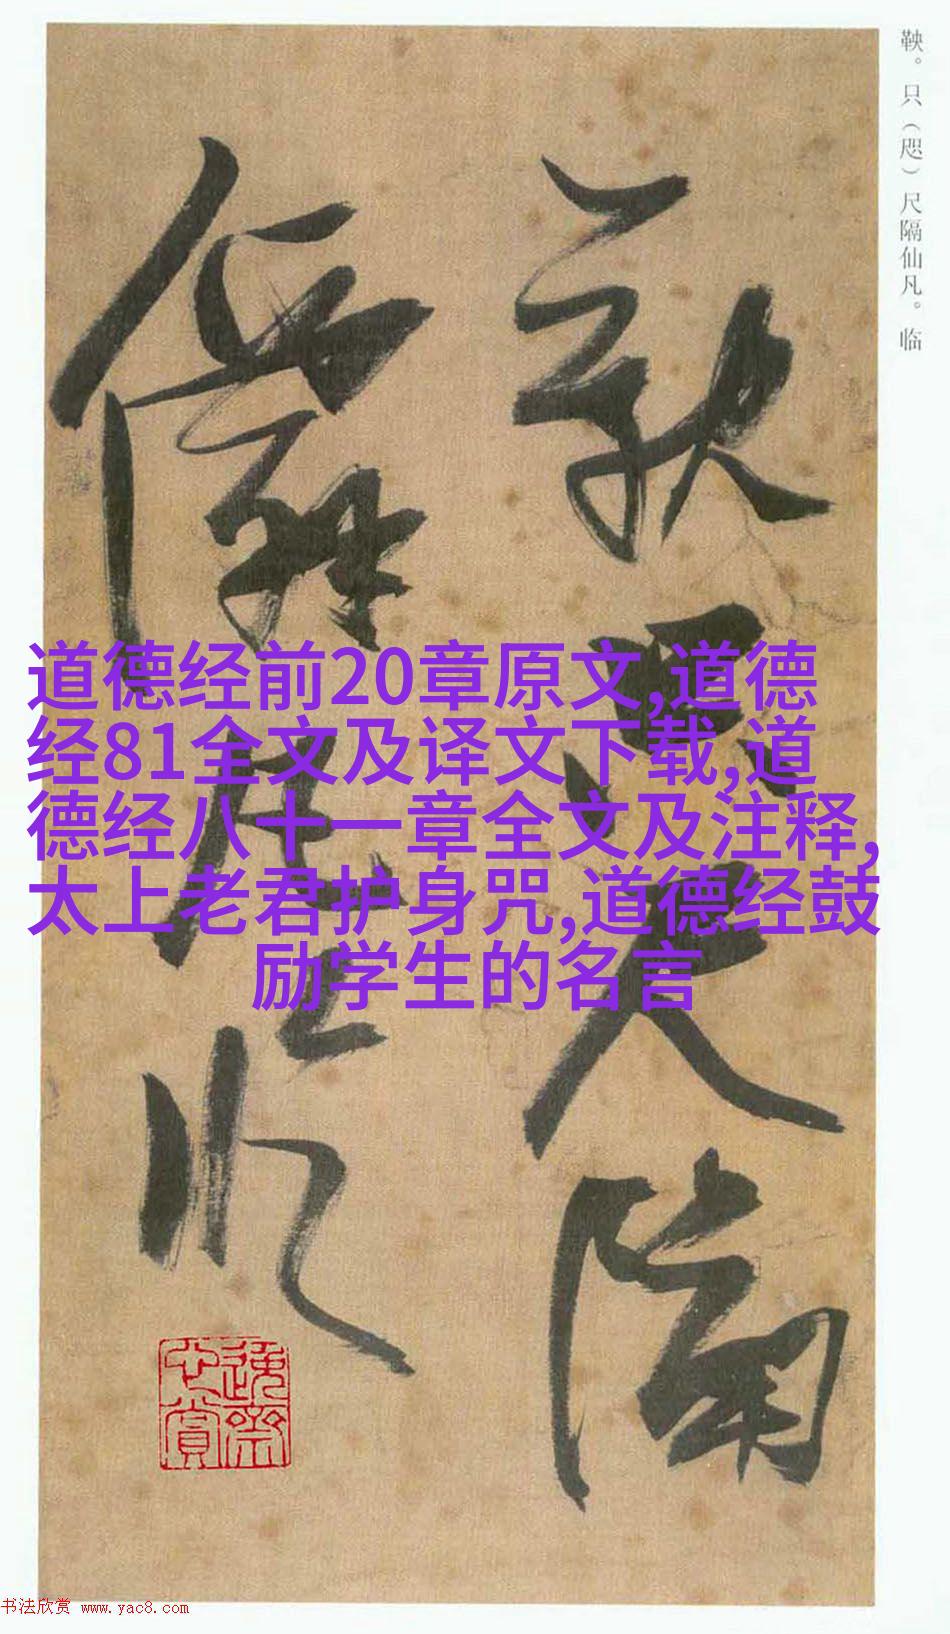 鞅。只（咫）尺隔仙凡。临
鞅只尺隔
仙凡临
道德经前20章原文,道德
经81全文及译文下载,道
德经八十一章全文及注释,
太上老君护身咒,道德经鼓
励学生的名言
书法欣赏 www.yac8.com